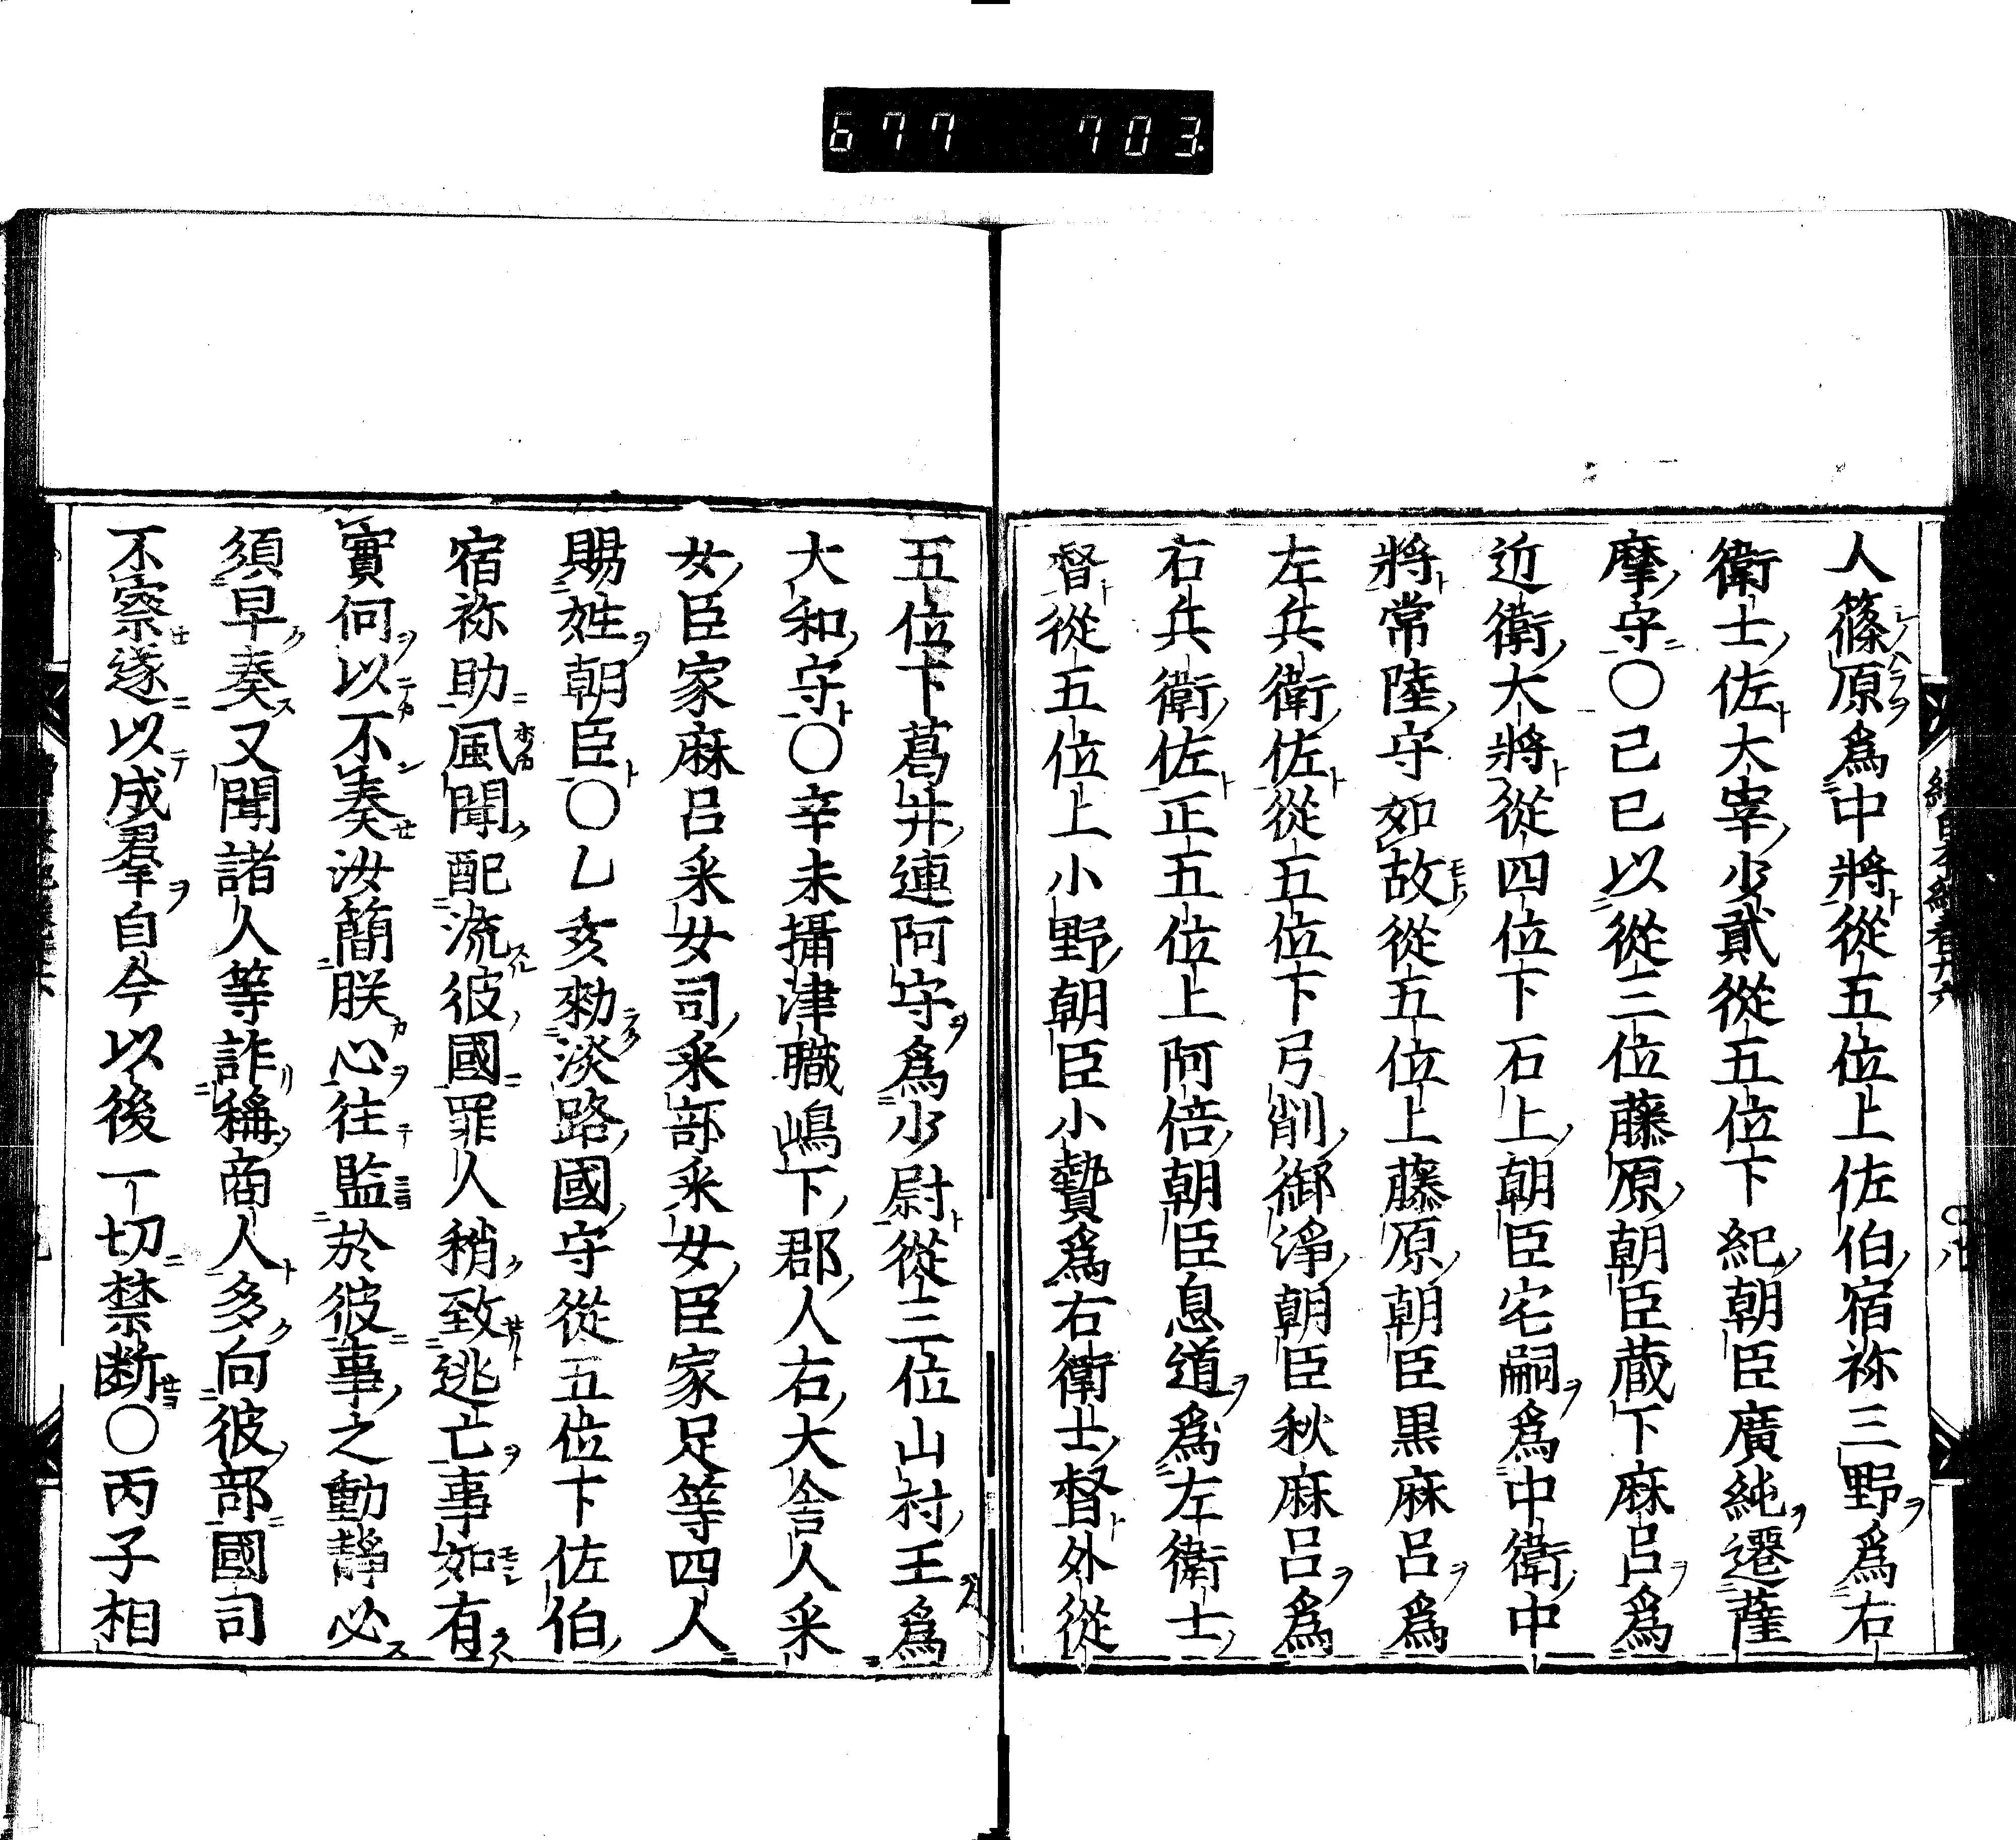 677 703.
人篠原爲中將從五位上佐伯宿祢三野爲右
衛士佐大宰少貳從五位下紀朝臣廣純遷薩
摩守〇己巳以從三位藤原朝臣蔵下麻呂爲
近衛大將從四位下石上朝臣宅嗣爲中衛中
將常陸守如故從五位上藤原朝臣黒麻呂爲
左兵衛佐從五位下弓削御淨朝臣秋麻呂爲
右兵衛佐正五位上阿倍朝臣息道爲左衛士
督從五位上小野朝臣小贄爲右衛士督外從
五位下葛井連阿守爲少尉從三位山村王爲
大和守〇辛未攝津職嶋下郡人右大舍人采
女臣家麻呂采女司采部采女臣家足等四人
賜姓朝臣〇乙亥勑淡路國守從五位下佐伯
宿祢助風聞配流彼國罪人稍致逃亡事如有
實何以不奏汝簡朕心往監於彼事之動靜必
須早奏又聞諸人等詐稱商人多向彼部國司
不察遂以成羣自今以後一切禁斷〇丙子相